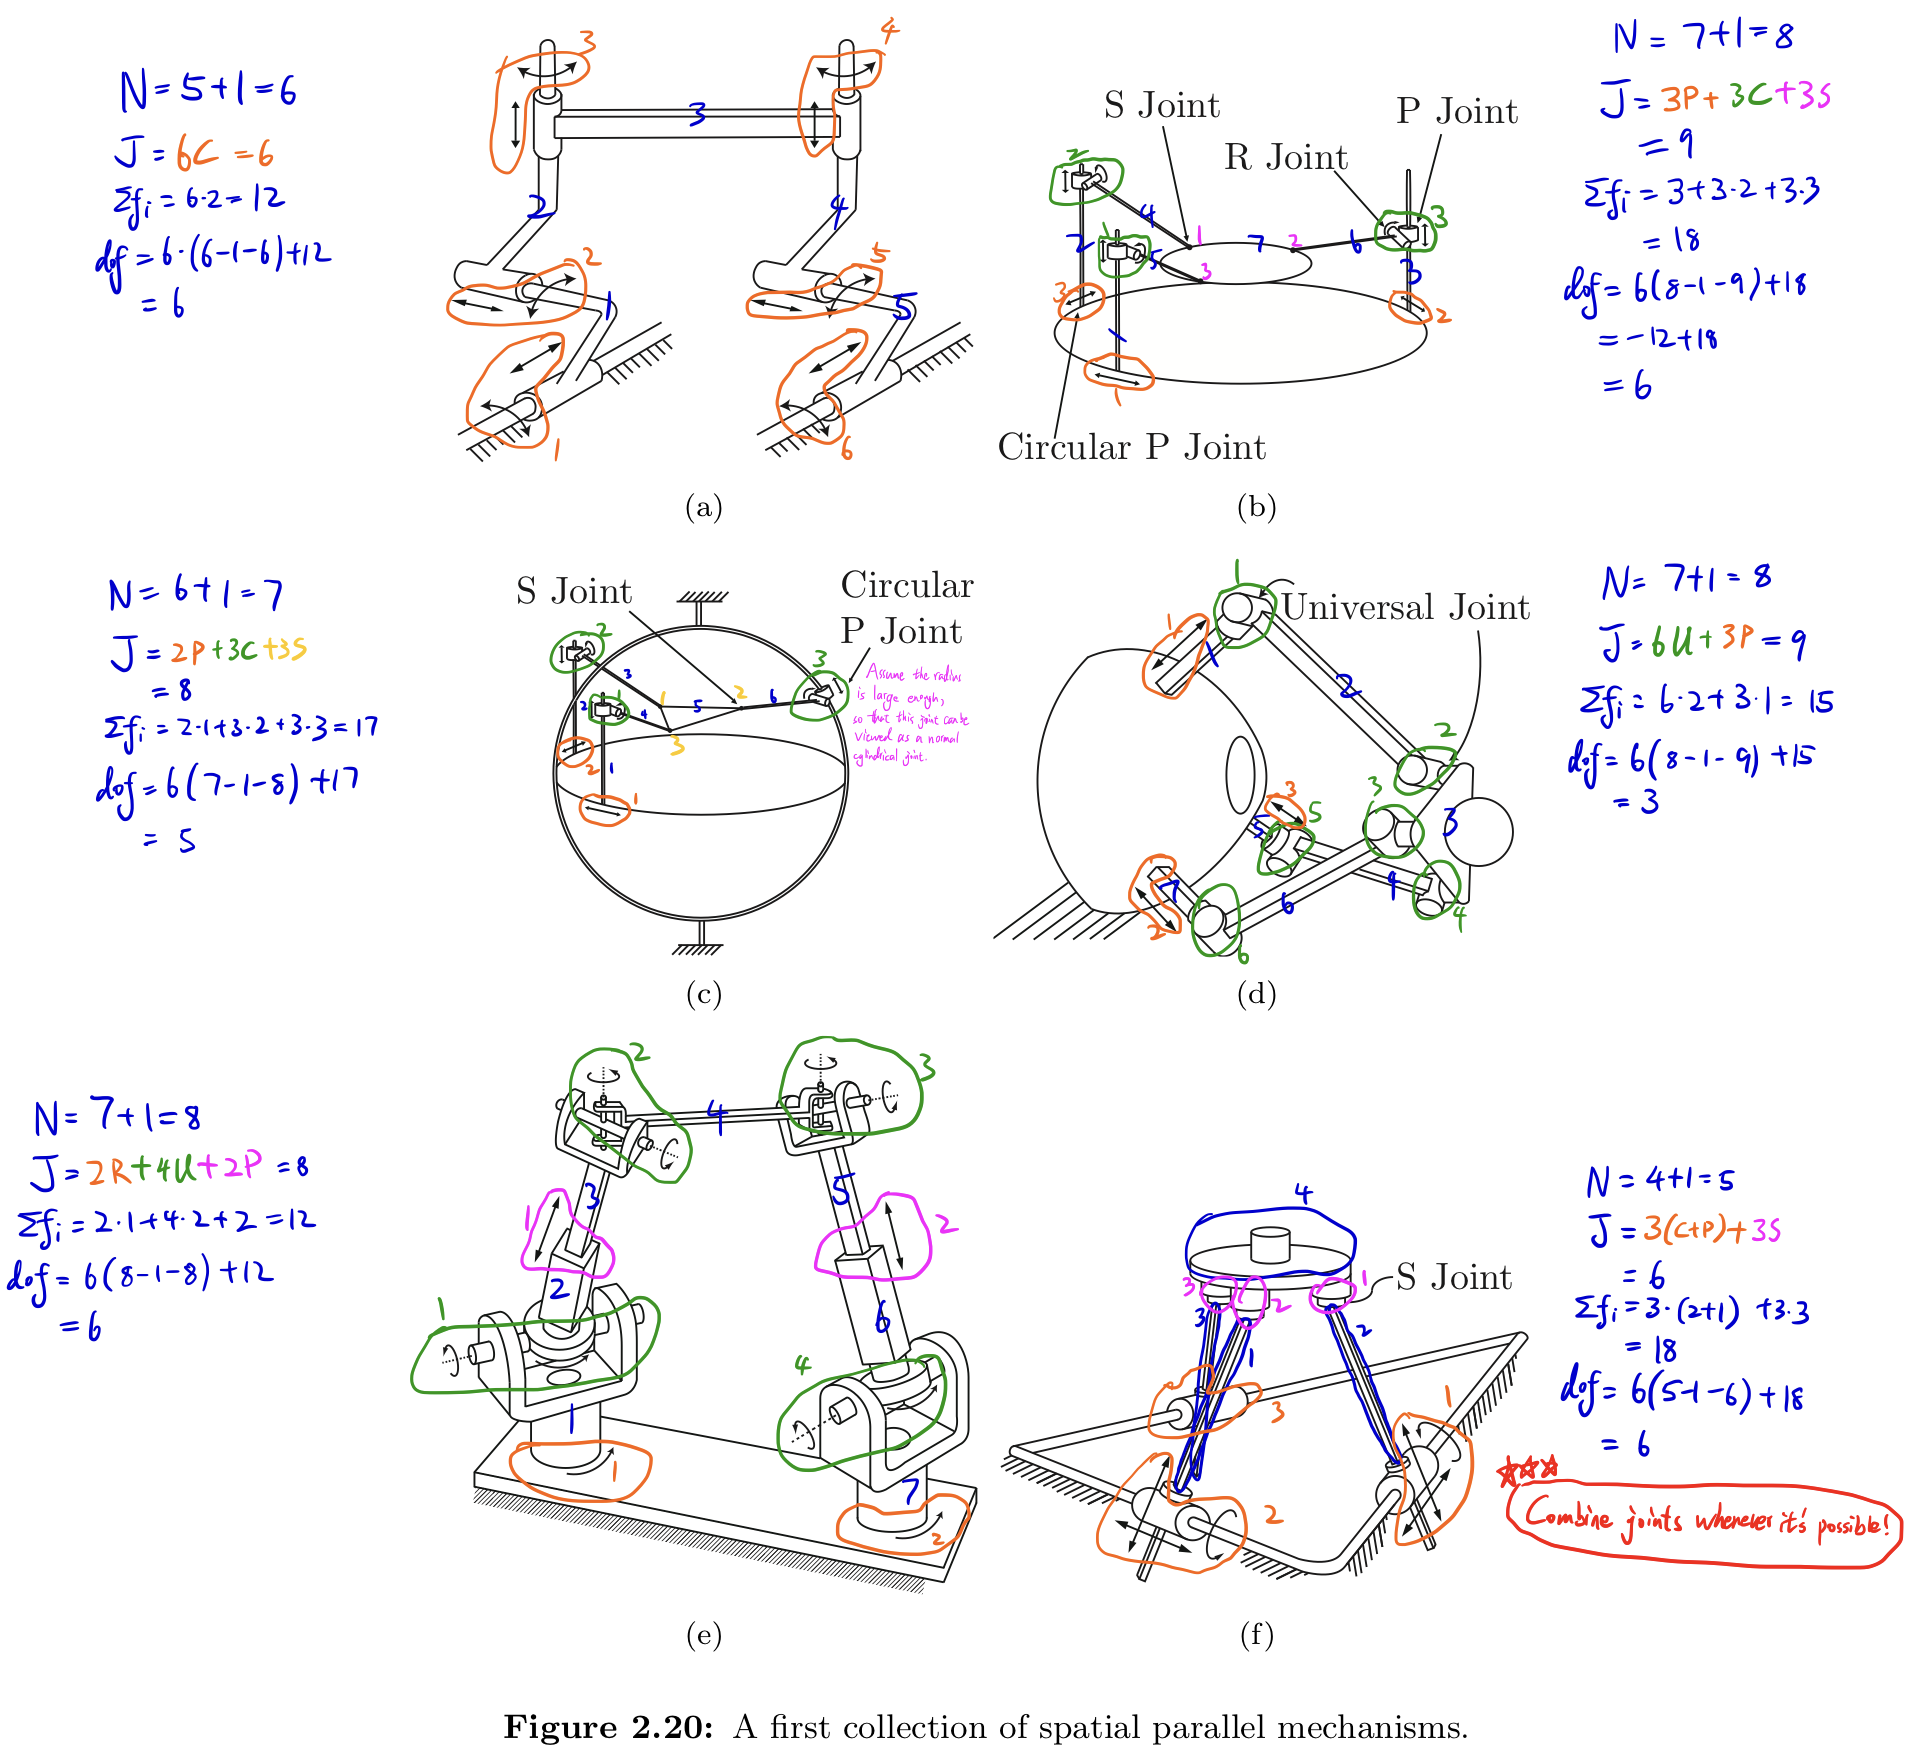 N = 5+1 = 6
J = 6C = 6
Σfi = 6·2 = 12
dof = 6·(6-1-6)+12
= 6
3
4
3
2
4
2
5
1
5
1
6
(a)
S Joint
P Joint
R Joint
Circular P Joint
2
4
1
7
2
6
3
2
1
5
3
3
3
2
1
1
(b)
N = 7+1 = 8
J = 3P + 3C + 3S
= 9
Σfi = 3+3·2+3·3
= 18
dof = 6(8-1-9)+18
= -12+18
= 6
N = 6+1 = 7
J = 2P+3C+3S
= 8
Σfi = 2·1+3·2+3·3 = 17
dof = 6(7-1-8)+17
= 5
S Joint
Circular
P Joint
Assume the radius
is large enough,
so that this joint can be
viewed as a normal
cylindrical joint.
2
3
3
1
5
2
6
2
1
4
3
2
1
1
(c)
Universal Joint
1
1
1
2
2
3
3
5
5
3
4
4
7
6
2
6
(d)
N = 7+1 = 8
J = 6U + 3P = 9
Σfi = 6·2+3·1 = 15
dof = 6(8-1-9)+15
= 3
N = 7+1 = 8
J = 2R+4U+2P = 8
Σfi = 2·1+4·2+2 = 12
dof = 6(8-1-8)+12
= 6
2
3
4
3
5
1
2
2
6
1
4
1
1
7
2
(e)
4
S Joint
3
2
1
3
1
2
3
1
2
(f)
N = 4+1 = 5
J = 3(C+P)+3S
= 6
Σfi = 3·(2+1)+3·3
= 18
dof = 6(5-1-6)+18
= 6
☆☆☆
Combine joints whenever it's possible!
Figure 2.20: A first collection of spatial parallel mechanisms.